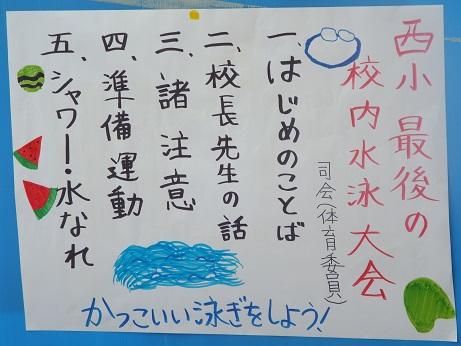 西小 最後の
校内水泳大会
司会(体育委員)
一、はじめのことば
二、校長先生の話
三、諸注意
四、準備運動
五、シャワー・水なれ
かっこいい泳ぎをしよう!